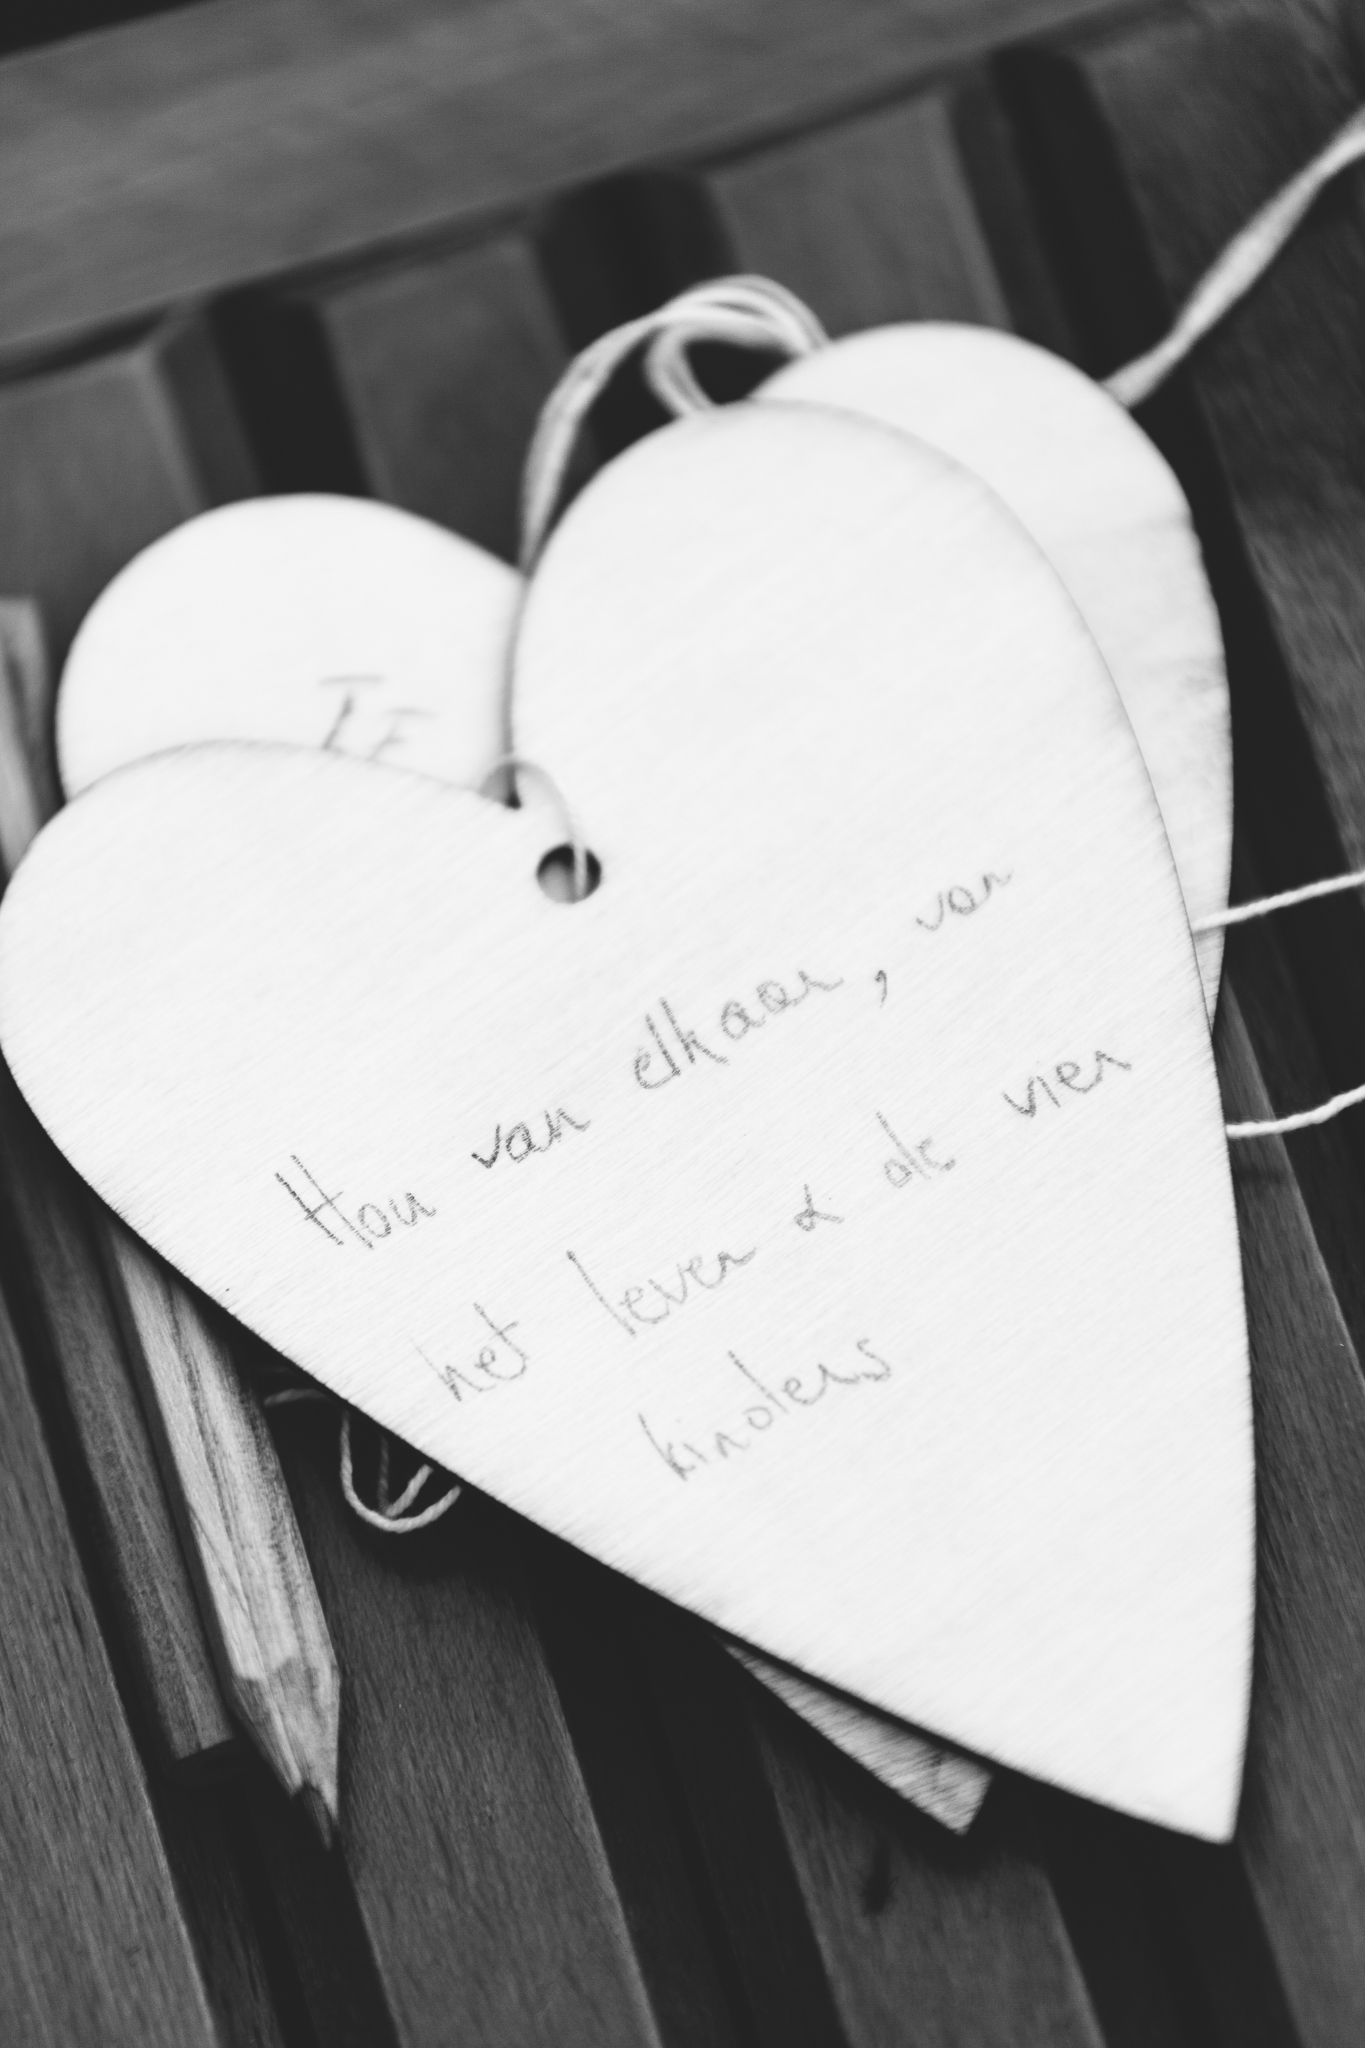 IF
Hou van elkaar, van
het leven & de vier
kinders